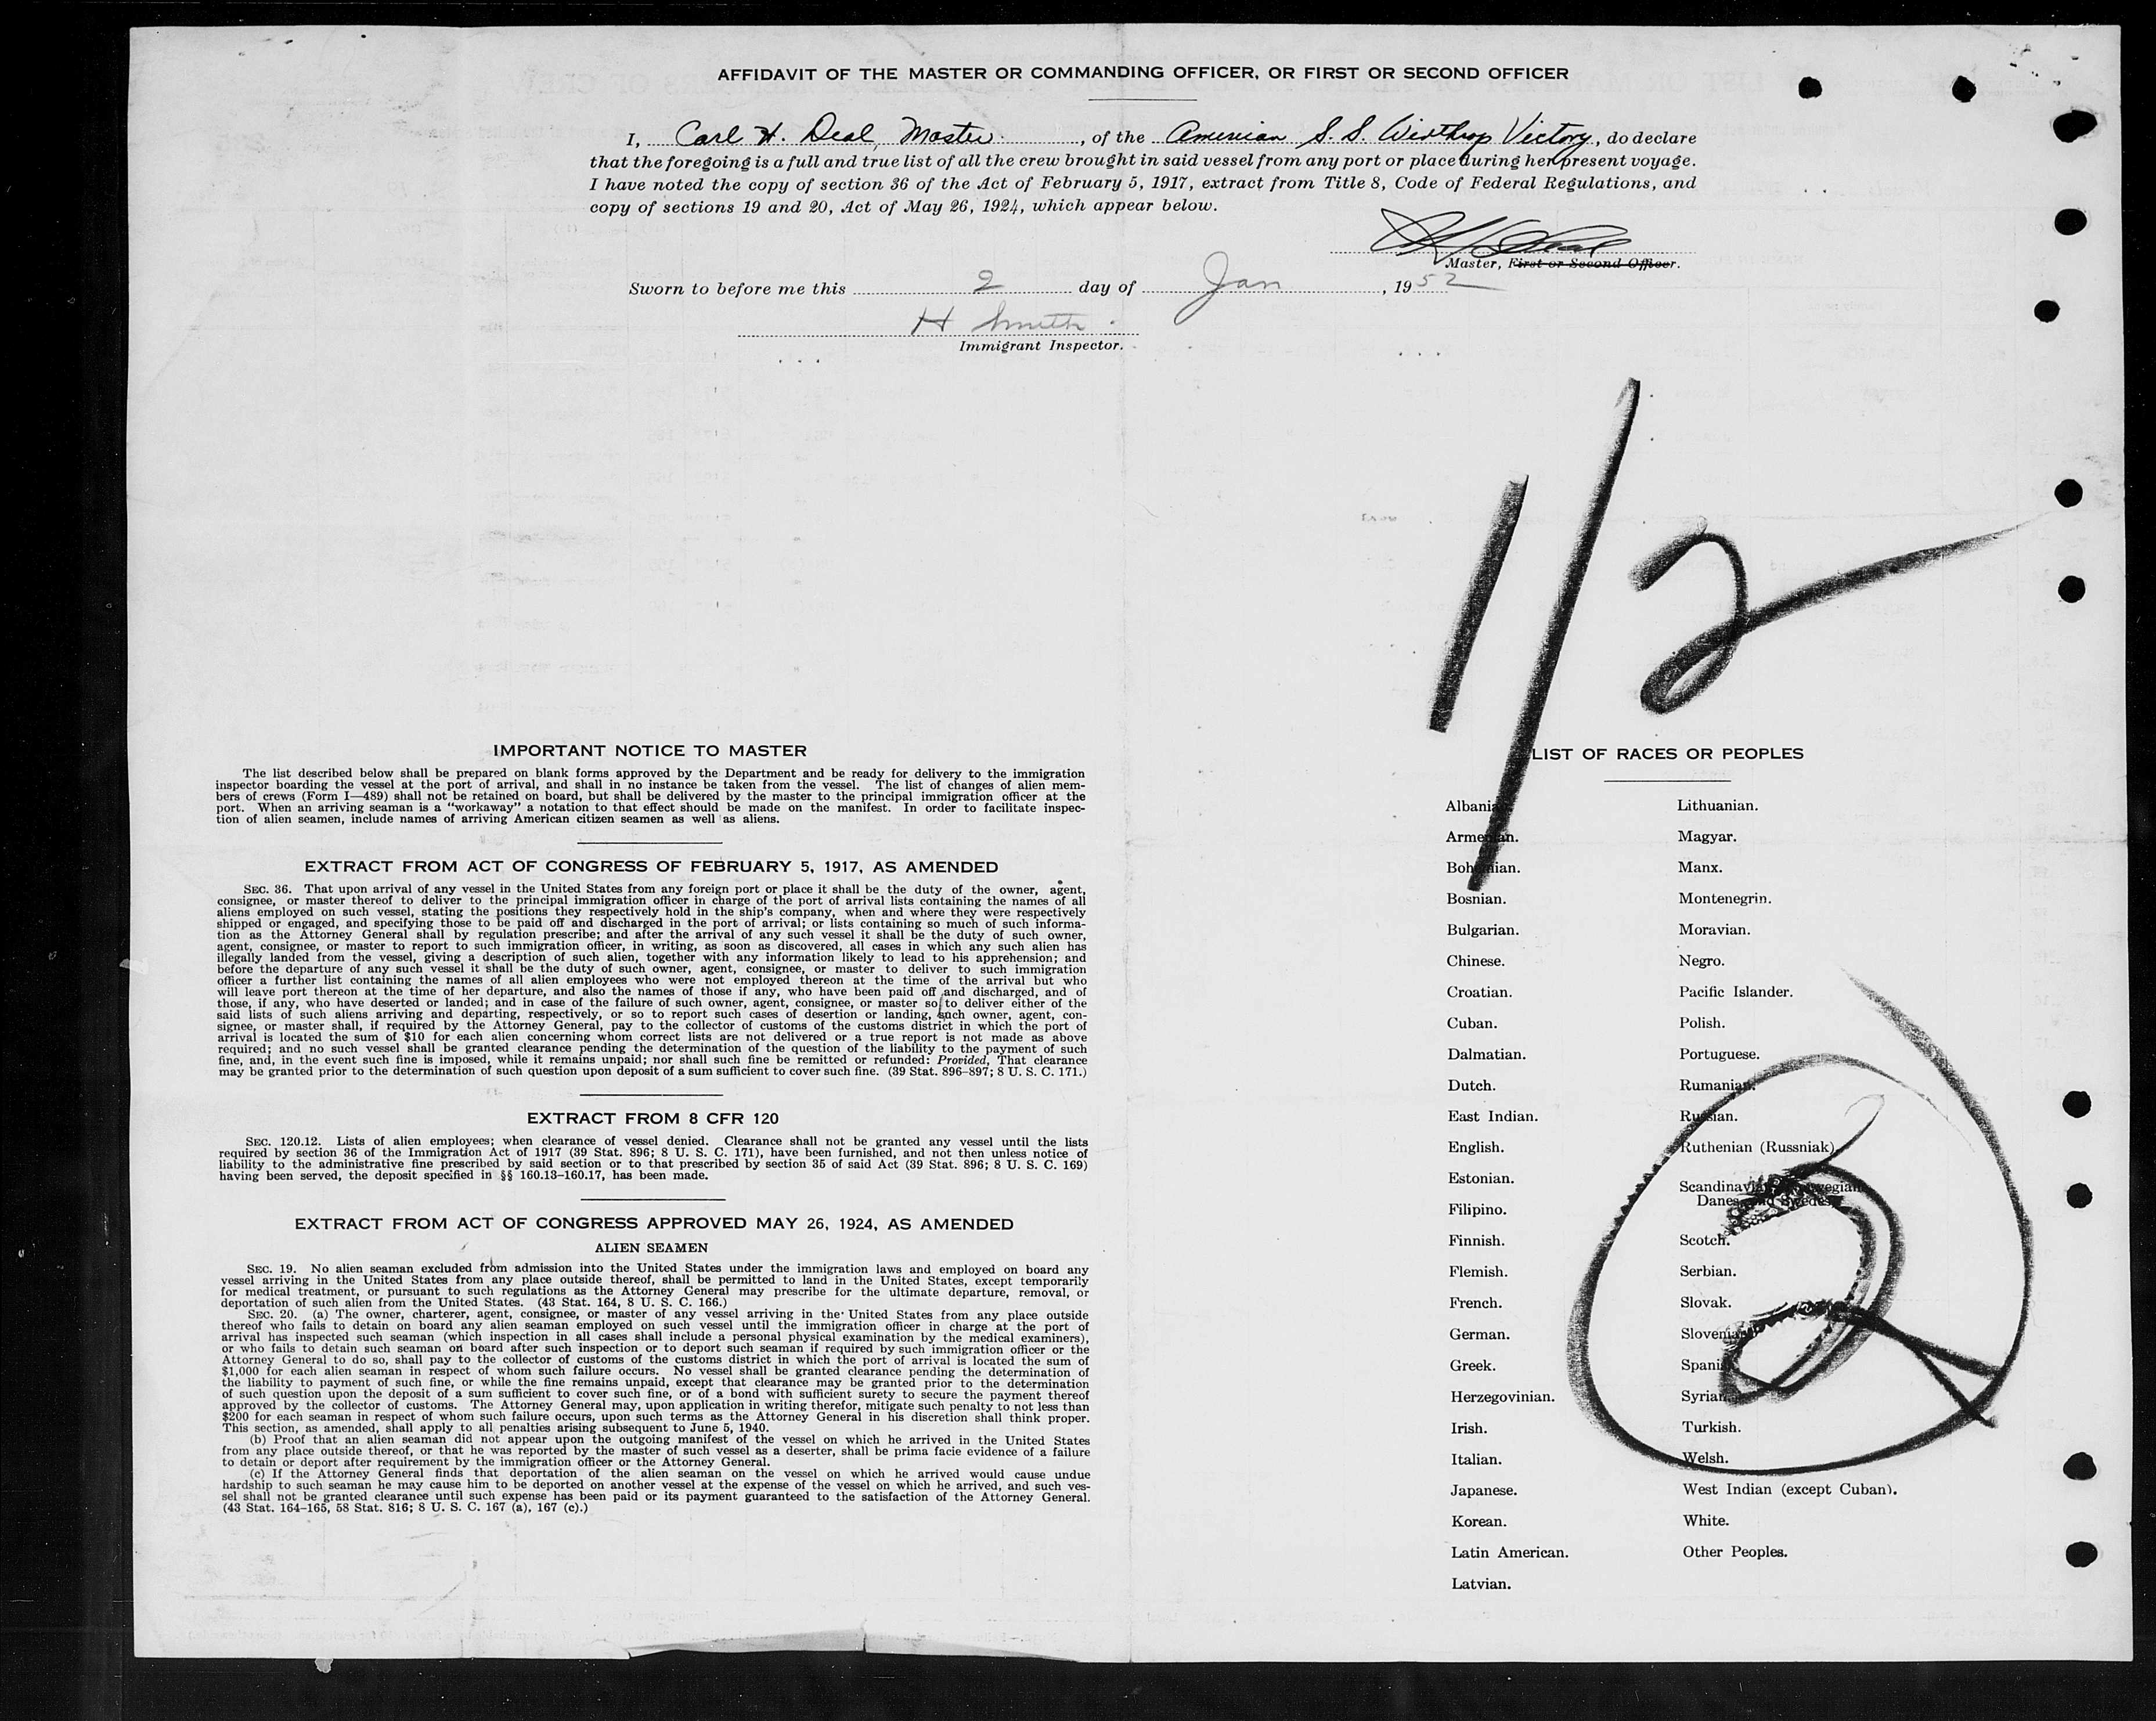 AFFIDAVIT OF THE MASTER OR COMMANDING OFFICER, OR FIRST OR SECOND OFFICER
I, Carl H. Deal, Master, of the American S. S. Winthrop Victory, do declare
that the foregoing is a full and true list of all the crew brought in said vessel from any port or place during her present voyage.
I have noted the copy of section 36 of the Act of February 5, 1917, extract from Title 8, Code of Federal Regulations, and
copy of sections 19 and 20, Act of May 26, 1924, which appear below.
Master, First or Second Officer.
Sworn to before me this 2 day of Jan, 1952
H Smith
Immigrant Inspector.
1/2
IMPORTANT NOTICE TO MASTER
The list described below shall be prepared on blank forms approved by the Department and be ready for delivery to the immigration
inspector boarding the vessel at the port of arrival, and shall in no instance be taken from the vessel. The list of changes of alien mem-
bers of crews (Form I—489) shall not be retained on board, but shall be delivered by the master to the principal immigration officer at the
port. When an arriving seaman is a "workaway" a notation to that effect should be made on the manifest. In order to facilitate inspec-
tion of alien seamen, include names of arriving American citizen seamen as well as aliens.
EXTRACT FROM ACT OF CONGRESS OF FEBRUARY 5, 1917, AS AMENDED
SEC. 36. That upon arrival of any vessel in the United States from any foreign port or place it shall be the duty of the owner, agent,
consignee, or master thereof to deliver to the principal immigration officer in charge of the port of arrival lists containing the names of all
aliens employed on such vessel, stating the positions they respectively hold in the ship's company, when and where they were respectively
shipped or engaged, and specifying those to be paid off and discharged in the port of arrival; or lists containing so much of such informa-
tion as the Attorney General shall by regulation prescribe; and after the arrival of any such vessel it shall be the duty of such owner,
agent, consignee, or master to report to such immigration officer, in writing, as soon as discovered, all cases in which any such alien has
illegally landed from the vessel, giving a description of such alien, together with any information likely to lead to his apprehension; and
before the departure of any such vessel it shall be the duty of such owner, agent, consignee, or master to deliver to such immigration
officer a further list containing the names of all alien employees who were not employed thereon at the time of the arrival but who
will leave port thereon at the time of her departure, and also the names of those if any, who have been paid off and discharged, and of
those, if any, who have deserted or landed; and in case of the failure of such owner, agent, consignee, or master so to deliver either of the
said lists of such aliens arriving and departing, respectively, or so to report such cases of desertion or landing, such owner, agent, con-
signee, or master shall, if required by the Attorney General, pay to the collector of customs of the customs district in which the port of
arrival is located the sum of $10 for each alien concerning whom correct lists are not delivered or a true report is not made as above
required; and no such vessel shall be granted clearance pending the determination of the question of the liability to the payment of such
fine, and, in the event such fine is imposed, while it remains unpaid; nor shall such fine be remitted or refunded: Provided, That clearance
may be granted prior to the determination of such question upon deposit of a sum sufficient to cover such fine. (39 Stat. 896–897; 8 U. S. C. 171.)
EXTRACT FROM 8 CFR 120
SEC. 120.12. Lists of alien employees; when clearance of vessel denied. Clearance shall not be granted any vessel until the lists
required by section 36 of the Immigration Act of 1917 (39 Stat. 896; 8 U. S. C. 171), have been furnished, and not then unless notice of
liability to the administrative fine prescribed by said section or to that prescribed by section 35 of said Act (39 Stat. 896; 8 U. S. C. 169)
having been served, the deposit specified in §§ 160.13–160.17, has been made.
EXTRACT FROM ACT OF CONGRESS APPROVED MAY 26, 1924, AS AMENDED
ALIEN SEAMEN
SEC. 19. No alien seaman excluded from admission into the United States under the immigration laws and employed on board any
vessel arriving in the United States from any place outside thereof, shall be permitted to land in the United States, except temporarily
for medical treatment, or pursuant to such regulations as the Attorney General may prescribe for the ultimate departure, removal, or
deportation of such alien from the United States. (43 Stat. 164, 8 U. S. C. 166.)
SEC. 20. (a) The owner, charterer, agent, consignee, or master of any vessel arriving in the United States from any place outside
thereof who fails to detain on board any alien seaman employed on such vessel until the immigration officer in charge at the port of
arrival has inspected such seaman (which inspection in all cases shall include a personal physical examination by the medical examiners),
or who fails to detain such seaman on board after such inspection or to deport such seaman if required by such immigration officer or the
Attorney General to do so, shall pay to the collector of customs of the customs district in which the port of arrival is located the sum of
$1,000 for each alien seaman in respect of whom such failure occurs. No vessel shall be granted clearance pending the determination of
the liability to payment of such fine, or while the fine remains unpaid, except that clearance may be granted prior to the determination
of such question upon the deposit of a sum sufficient to cover such fine, or of a bond with sufficient surety to secure the payment thereof
approved by the collector of customs. The Attorney General may, upon application in writing therefor, mitigate such penalty to not less than
$200 for each seaman in respect of whom such failure occurs, upon such terms as the Attorney General in his discretion shall think proper.
This section, as amended, shall apply to all penalties arising subsequent to June 5, 1940.
(b) Proof that an alien seaman did not appear upon the outgoing manifest of the vessel on which he arrived in the United States
from any place outside thereof, or that he was reported by the master of such vessel as a deserter, shall be prima facie evidence of a failure
to detain or deport after requirement by the immigration officer or the Attorney General.
(c) If the Attorney General finds that deportation of the alien seaman on the vessel on which he arrived would cause undue
hardship to such seaman he may cause him to be deported on another vessel at the expense of the vessel on which he arrived, and such ves-
sel shall not be granted clearance until such expense has been paid or its payment guaranteed to the satisfaction of the Attorney General.
(43 Stat. 164–165, 58 Stat. 816; 8 U. S. C. 167 (a), 167 (c).)
LIST OF RACES OR PEOPLES
Albanian.
Armenian.
Bohemian.
Bosnian.
Bulgarian.
Chinese.
Croatian.
Cuban.
Dalmatian.
Dutch.
East Indian.
English.
Estonian.
Filipino.
Finnish.
Flemish.
French.
German.
Greek.
Herzegovinian.
Irish.
Italian.
Japanese.
Korean.
Latin American.
Latvian.
Lithuanian.
Magyar.
Manx.
Montenegrin.
Moravian.
Negro.
Pacific Islander.
Polish.
Portuguese.
Rumanian.
Russian.
Ruthenian (Russniak)
Scandinavian Norwegian
Danes and Swedes
Scotch.
Serbian.
Slovak.
Slovenian
Spanish
Syrian
Turkish.
Welsh.
West Indian (except Cuban).
White.
Other Peoples.
2